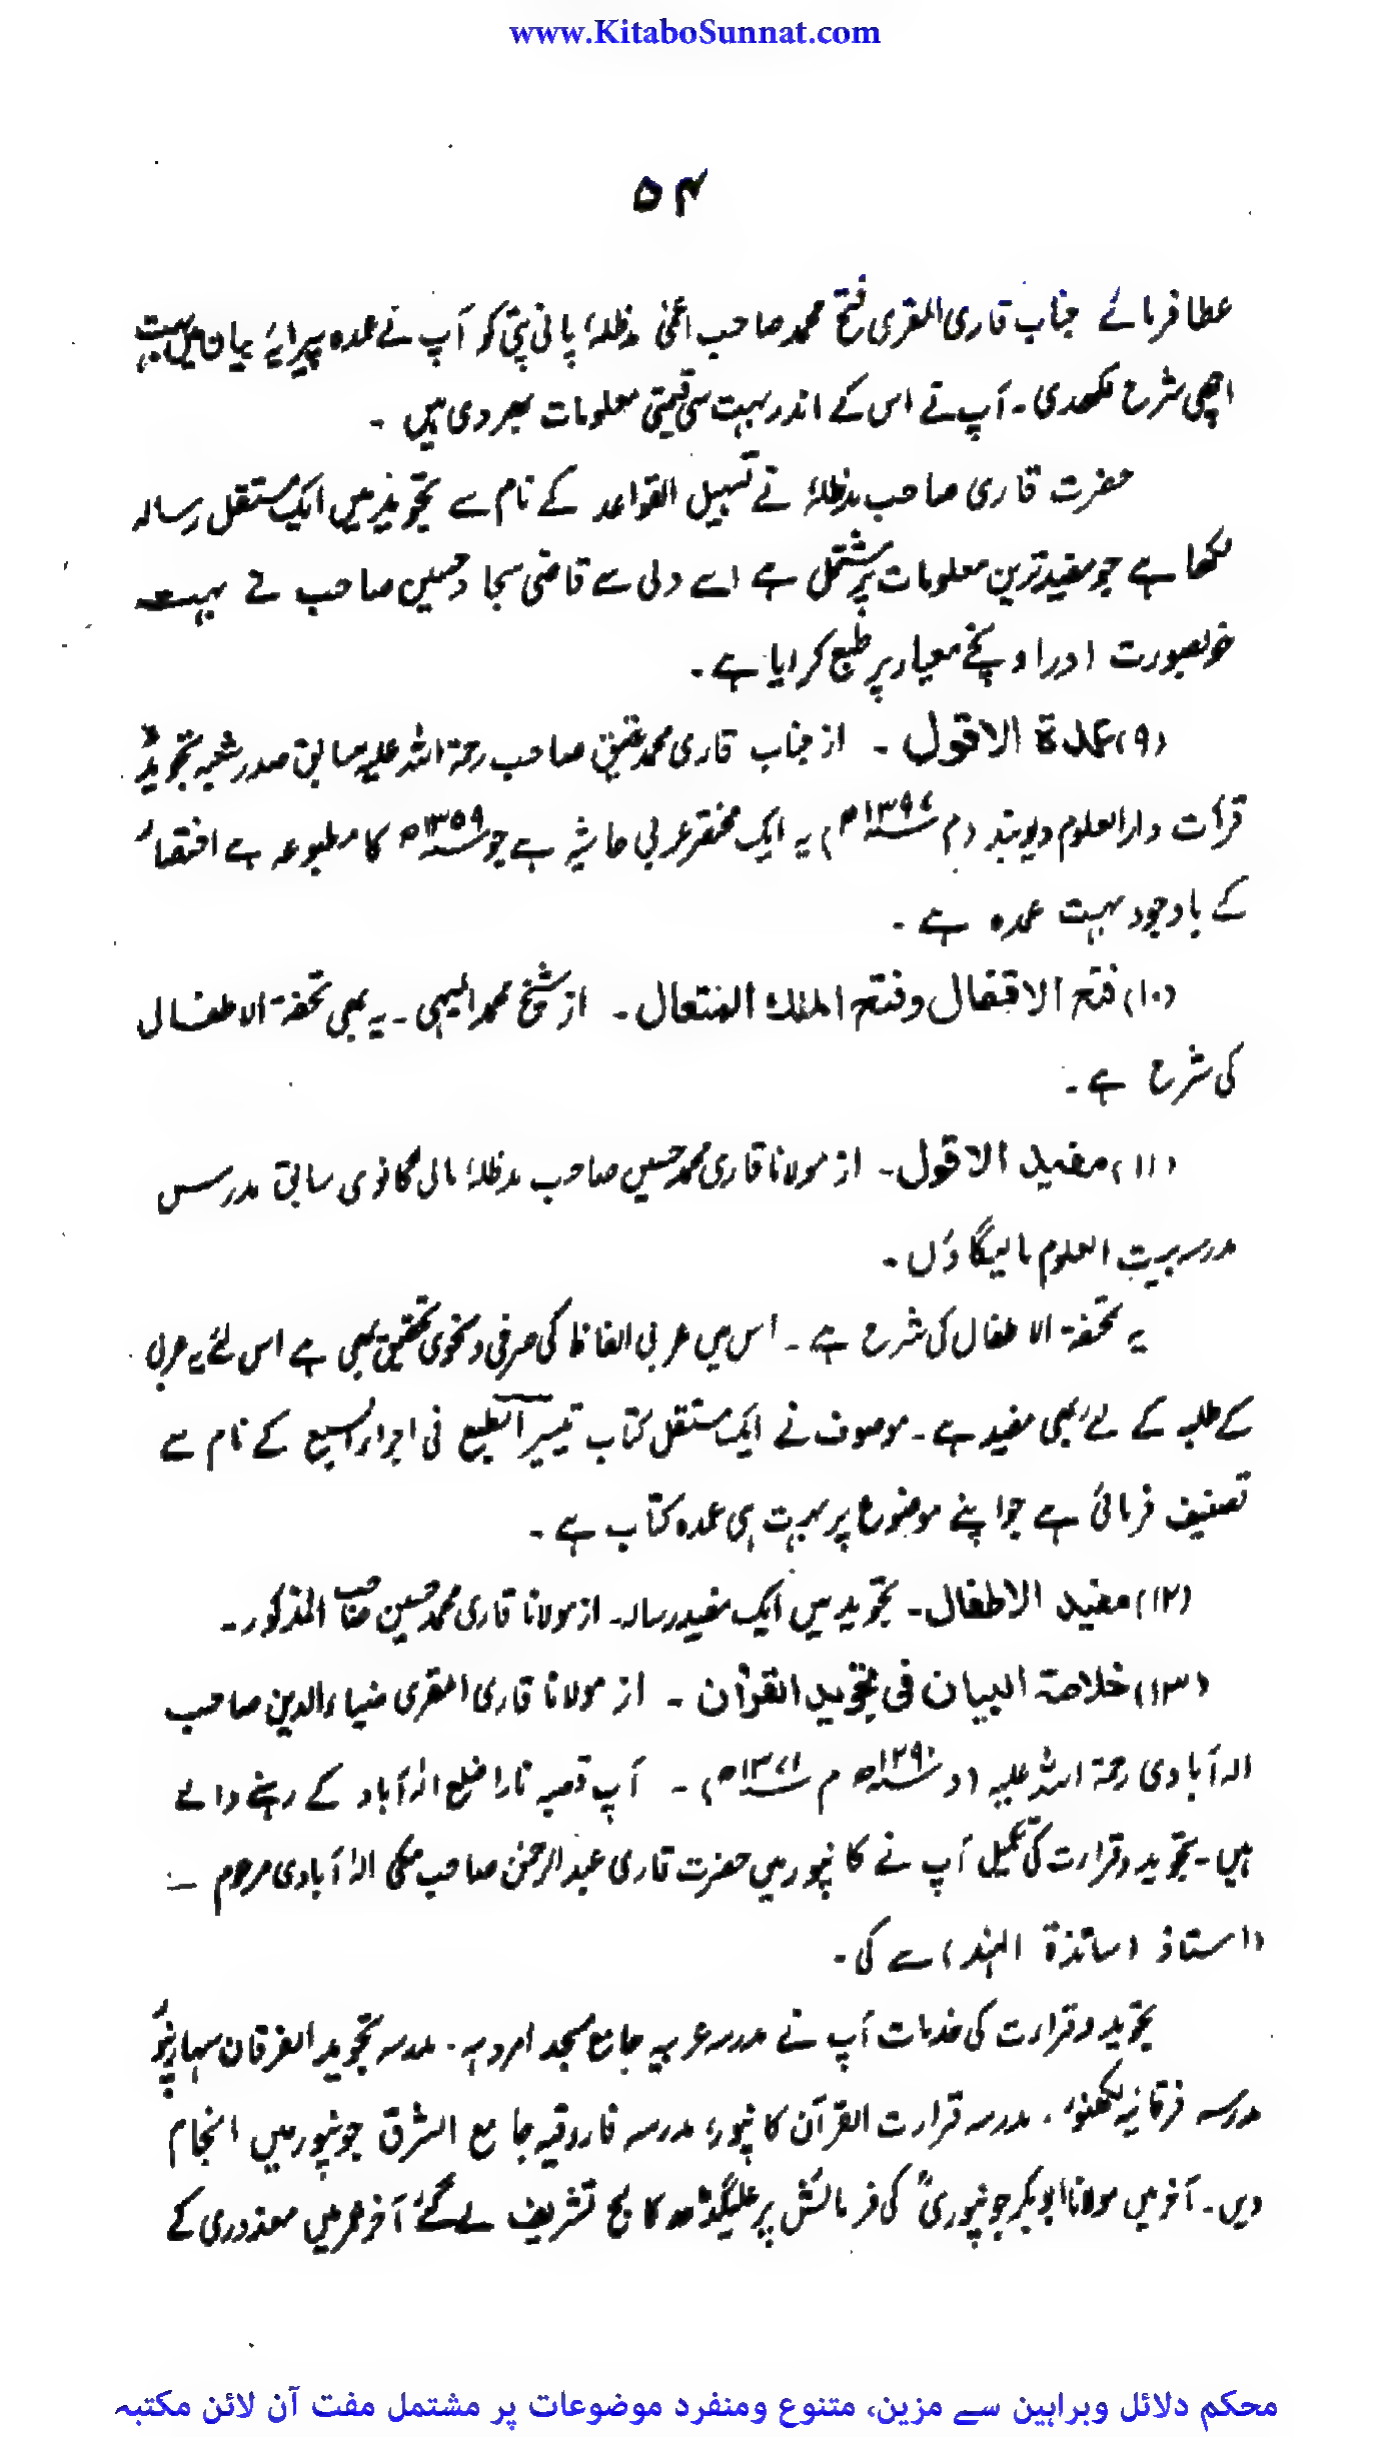 www.KitaboSunnat.com
۵۴
عطا فرمائے جناب قاری المقری فتح محمد صاحب اعمٰی مدظلہٗ پانی پتی کو آپ نے عمدہ پیرایۂ بیان میں بہت
اچھی شرح لکھدی۔ آپ نے اس کے اندر بہت سی قیمتی معلومات بھر دی ہیں ۔
حضرت قاری صاحب مدظلہٗ نے تسہیل القواعد کے نام سے تجوید میں ایک مستقل رسالہ
لکھا ہے جو مفید ترین معلومات پر مشتمل ہے اسے دلی سے قاضی سجاد حسین صاحب نے بہت
خوبصورت اور اونچے معیار پر طبع کرایا ہے ۔
(۹) عمدۃ الاقول ۔ از جناب قاری محمد عتیق صاحب رحمۃ اللہ علیہ سابق صدر شعبہ تجوید و
قرأت دارالعلوم دیوبند (م ۱۳۹۶ھ) یہ ایک مختصر عربی حاشیہ ہے جو ۱۳۵۹ھ کا مطبوعہ ہے اختصار
کے باوجود بہت عمدہ ہے ۔
(۱۰) فتح الاقفال وفتح الملک المتعال ۔ از شیخ محمد المیہی ۔ یہ بھی تحفۃ الاطفال
کی شرح ہے ۔
(۱۱) مفید الاقول ۔ از مولانا قاری محمد حسین صاحب مدظلہٗ مالی گانوی سابق مدرس
مدرسہ بیت العلوم مالیگاؤں ۔
یہ تحفۃ الاطفال کی شرح ہے ۔ اس میں عربی الفاظ کی صرفی و نحوی تحقیق بھی ہے اس لئے یہ عربی
کے طلبہ کے لئے بھی مفید ہے ۔ موصوف نے ایک مستقل کتاب تیسیر الطبع فی اجراء السبع کے نام سے
تصنیف فرمائی ہے جو اپنے موضوع پر بہت ہی عمدہ کتاب ہے ۔
(۱۲) مفید الاطفال ۔ تجوید میں ایک مفید رسالہ ۔ از مولانا قاری محمد حسین صاحب المذکور ۔
(۱۳) خلاصۃ البیان فی تجوید القرآن ۔ از مولانا قاری المقری ضیاء الدین صاحب
الہ آبادی رحمۃ اللہ علیہ (و ۱۲۹۰ھ م ۱۳۷۱ھ) ۔ آپ قصبہ نارا ضلع الٰہ آباد کے رہنے والے
ہیں ۔ تجوید و قرارت کی تکمیل آپ نے کانپور میں حضرت قاری عبدالرحمٰن صاحب مکی الہٰ آبادی مرحوم
(استاذ اساتذۃ الہند) سے کی ۔
تجوید و قرارت کی خدمات آپ نے مدرسہ عربیہ جامع مسجد امروہہ ۔ مدرسہ تجوید الفرقان سہارنپور
مدرسہ فرقانیہ لکھنؤ ۔ مدرسہ قرارت القرآن کانپور، مدرسہ فاروقیہ جامع الشرق جونپور میں انجام
دیں ۔ آخر میں مولانا ابوبکر جونپوریؒ کی فرمائش پر علیگڑھ کالج تشریف لے گئے آخر عمر میں معذوری کے
محکم دلائل وبراہین سے مزین، متنوع ومنفرد موضوعات پر مشتمل مفت آن لائن مکتبہ